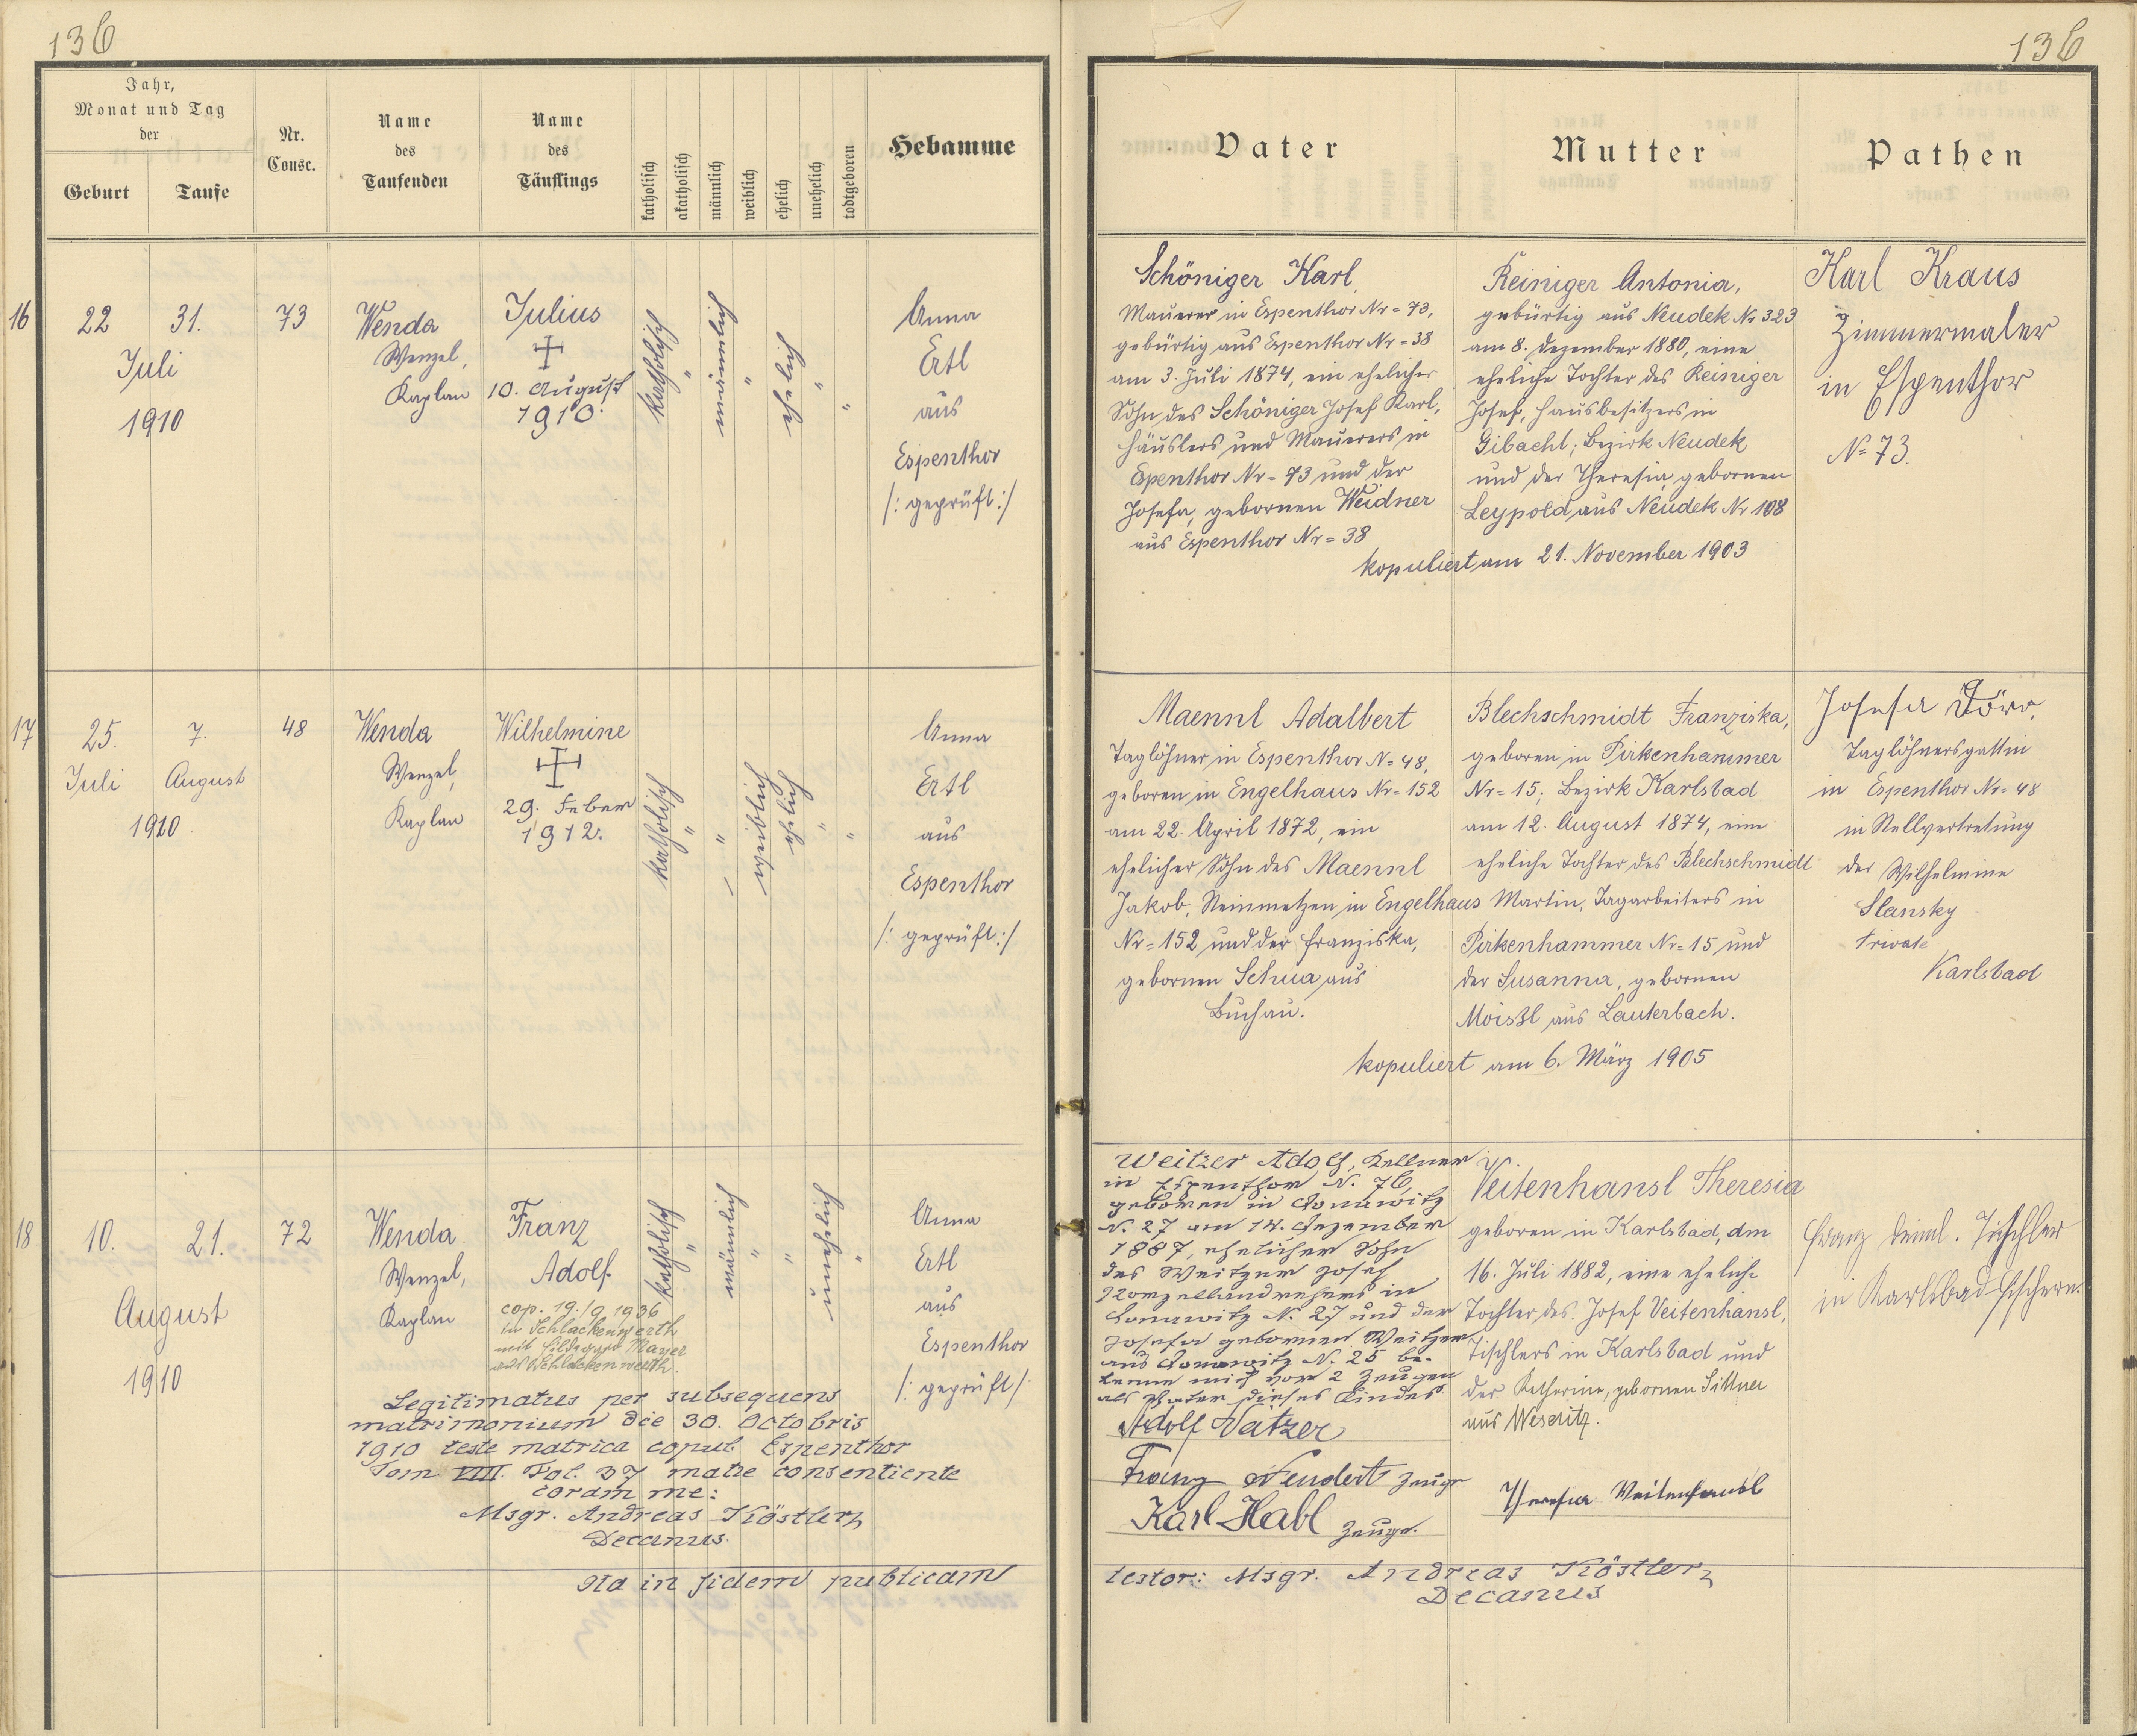 136
136
Jahr,
Monat und Tag
der
Geburt
Taufe
Nr.
Consc.
Name
des
Taufenden
Name
des
Täuflings
katholisch
akatholisch
männlich
weiblich
ehelich
unehelich
todtgeboren
Hebamme
Vater
Mutter
Pathen
16
22
31.
Juli
1910
73
Wenda
Wenzel,
Kaplan
Julius
10. August
1910.
katholisch
"
männlich
"
ehelich
"
"
Anna
Ertl
aus
Espenthor
/: geprüft :/
Schöniger Karl,
Maurer in Espenthor Nr = 73,
gebürtig aus Espenthor Nr = 38
am 3. Juli 1874, ein ehelicher
Sohn des Schöniger Josef Karl,
Häuslers und Maurers in
Espenthor Nr = 73 und der
Josefa, gebornen Weidner
aus Espenthor Nr = 38
Reiniger Antonia,
gebürtig aus Neudek Nr 323
am 8. Dezember 1880, eine
eheliche Tochter des Reiniger
Josef, Hausbesitzers in
Gibacht; Bezirk Neudek
und der Theresia, gebornen
Leypold aus Neudek Nr 108
kopuliert am 21. November 1903
Karl Kraus
Zimmermaler
in Espenthor
N= 73.
17
25.
7.
Juli
August
1910
48
Wenda
Wenzel,
Kaplan
Wilhelmine
29. Feber
1912.
katholisch
"
"
weiblich
ehelich
"
"
Anna
Ertl
aus
Espenthor
/: geprüft :/
Maennl Adalbert
Taglöhner in Espenthor N= 48,
geboren in Engelhaus Nr= 152
am 22. April 1872, ein
ehelicher Sohn des Maennl
Jakob, Steinmetzen in Engelhaus
Nr= 152 und der Franziska,
gebornen Schua aus
Buchau.
Blechschmidt Franziska,
geboren in Pirkenhammer
Nr= 15; Bezirk Karlsbad
am 12. August 1874, eine
eheliche Tochter des Blechschmidt
Martin, Tagarbeiters in
Pirkenhammer Nr= 15 und
der Susanna, gebornen
Moißl aus Lauterbach.
kopuliert am 6. März 1905
Josefa Dörr,
Taglöhnersgattin
in Espenthor Nr= 48
in Stellvertretung
der Wilhelmine
Slansky
Private
Karlsbad
18
10.
21.
August
1910
72
Wenda
Wenzel,
Kaplan
Franz
Adolf
cop. 19./9. 1936
in Schlackenwerth
mit Hildegard Mayer
aus Schlackenwerth.
katholisch
"
männlich
"
"
unehelich
"
Anna
Ertl
aus
Espenthor
/: geprüft /:
Legitimatus per subsequens
matrimonium die 30. Octobris
1910 teste matrica copul. Espenthor
Tom. VIII. Fol. 37 matre consentiente
coram me:
Msgr. Andreas Köstler
Decanus.
Weitzer Adolf, Kellner
in Espenthor N. 76,
geboren in Donawitz
N. 27 am 14. Dezember
1887, ehelicher Sohn
des Weitzer Josef
Porzellandrehers in
Donawitz N. 27 und der
Josefa gebornen Weitzer
aus Donawitz N. 25 be-
kenne mich vor 2 Zeugen
als Vater dieses Kindes
Adolf Vatzer
Franz Neudert Zeuge
Karl Habl Zeuge.
Veitenhansl Theresia
geboren in Karlsbad, den
16. Juli 1882, eine eheliche
Tochter des Josef Veitenhansl,
Tischlers in Karlsbad und
der Katharina, gebornen Sittner
aus Weseritz.
Theresia Veitenhansl
Franz Deml. Tischler
in Karlsbad Fischern.
Ita in fidem publicam
testor: Msgr. Andreas Köstler
Decanus